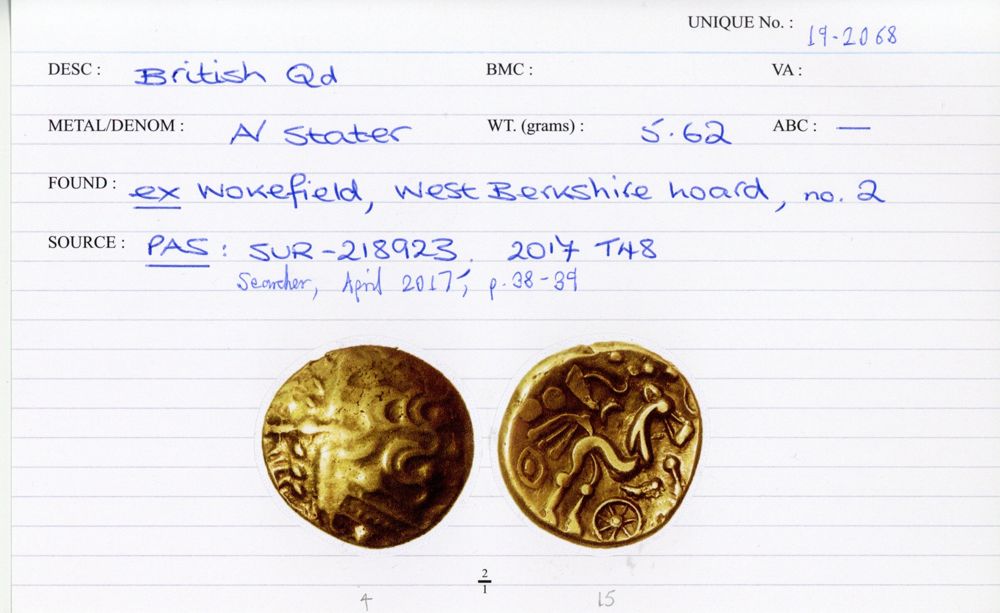 UNIQUE No. : 19-2068
DESC : British Qd BMC : VA :
METAL/DENOM : AV Stater WT. (grams) : 5.62 ABC : —
FOUND : ex Wokefield, West Berkshire hoard, no. 2
SOURCE : PAS : SUR-218923. 2017 T48
Searcher, April 2017, p.38-39
2
1
4 15